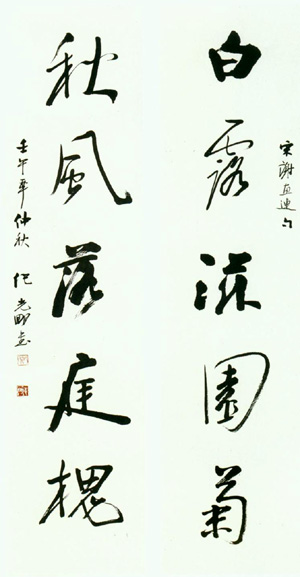 宋謝惠連句
白露滋園菊
秋風落庭槐
壬午年仲秋 光明